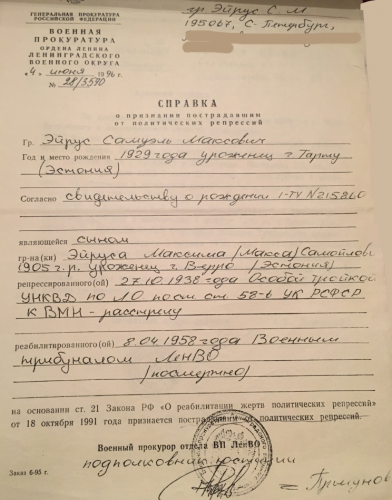 ГЕНЕРАЛЬНАЯ ПРОКУРАТУРА
РОССИЙСКОЙ ФЕДЕРАЦИИ
гр. Эйрус С. М
195067, С-Петербург,
ВОЕННАЯ
ПРОКУРАТУРА
ОРДЕНА ЛЕНИНА
ЛЕНИНГРАДСКОГО
ВОЕННОГО ОКРУГА
„4" июня 1996 г.
№ 28/3570
СПРАВКА
о признании пострадавшим
от политических репрессий
Гр. Эйрус Самуэль Максович
Год и место рождения 1929 года уроженец г. Тарту
(Эстония)
Согласно свидетельству о рождении I-ТУ N215860
являющейся сыном
гр-на(ки) Эйруса Максима (Макса) Самойлов
1905 г.р. уроженец г. Выру (Эстония)
репрессированного(ой) 27.10 1938 Особой тройкой
УНКВД по ЛО по ст. 58-6 УК РСФСР
к ВМН - расстрелу
реабилитированного(ой) 8.04 1958 года Военным
трибуналом ЛенВО
(посмертно)
на основании ст. 21 Закона РФ «О реабилитации жертв политических репрессий»
от 18 октября 1991 года признается пострадавшим от политических репрессий.
Военный прокурор отдела ВП ЛенВО
подполковник юстиции
Заказ 6-95 г.